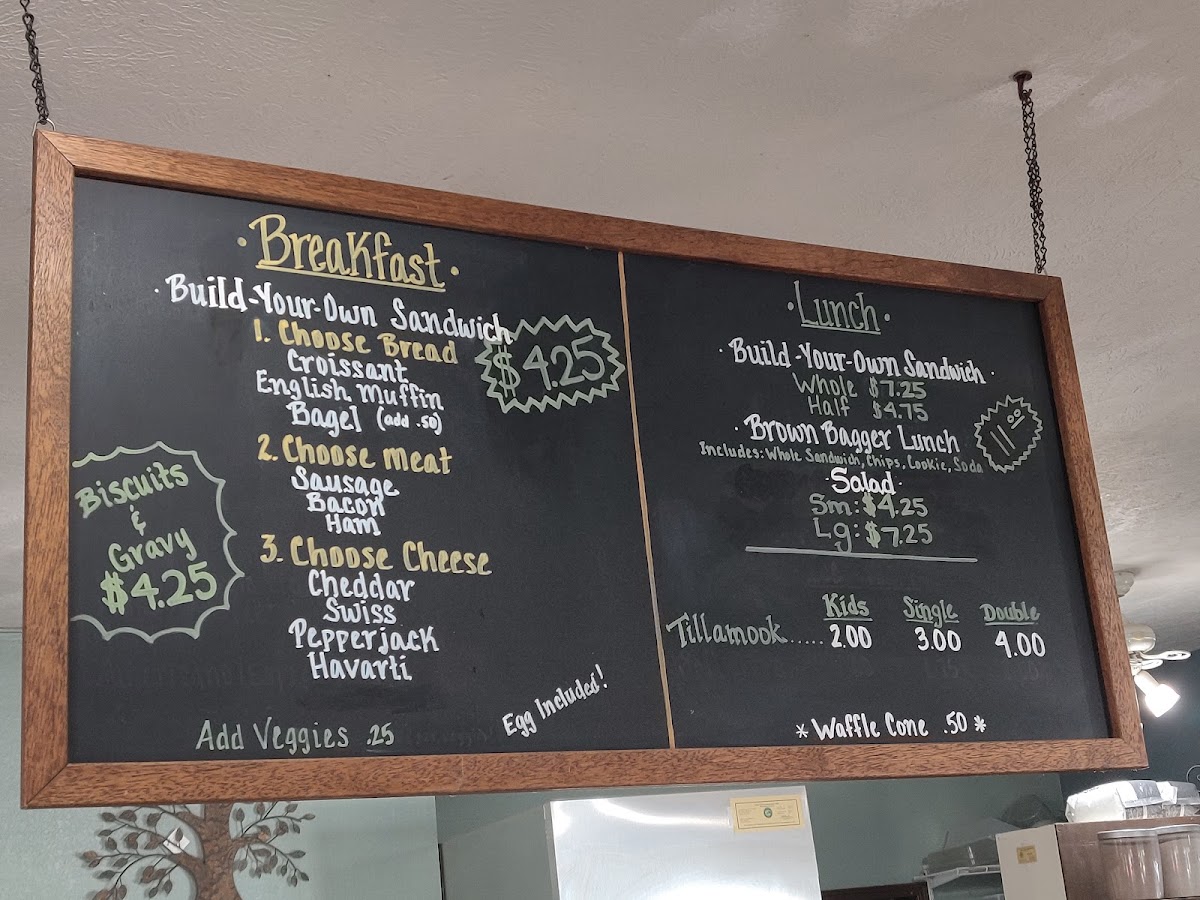 · Breakfast ·
· Build-Your-Own Sandwich
$4.25
1. Choose Bread
Croissant
English Muffin
Bagel (add .50)
2. Choose Meat
Sausage
Bacon
Ham
3. Choose Cheese
Cheddar
Swiss
Pepperjack
Havarti
Biscuits
&
Gravy
$4.25
Add Veggies .25
Egg Included!
· Lunch ·
· Build-Your-Own Sandwich ·
Whole $7.25
Half $4.75
· Brown Bagger Lunch
Includes: Whole Sandwich, Chips, Cookie, Soda
· Salad ·
Sm: $4.25
Lg: $7.25
Kids Single Double
Tillamook..... 2.00 3.00 4.00
* Waffle Cone .50 *